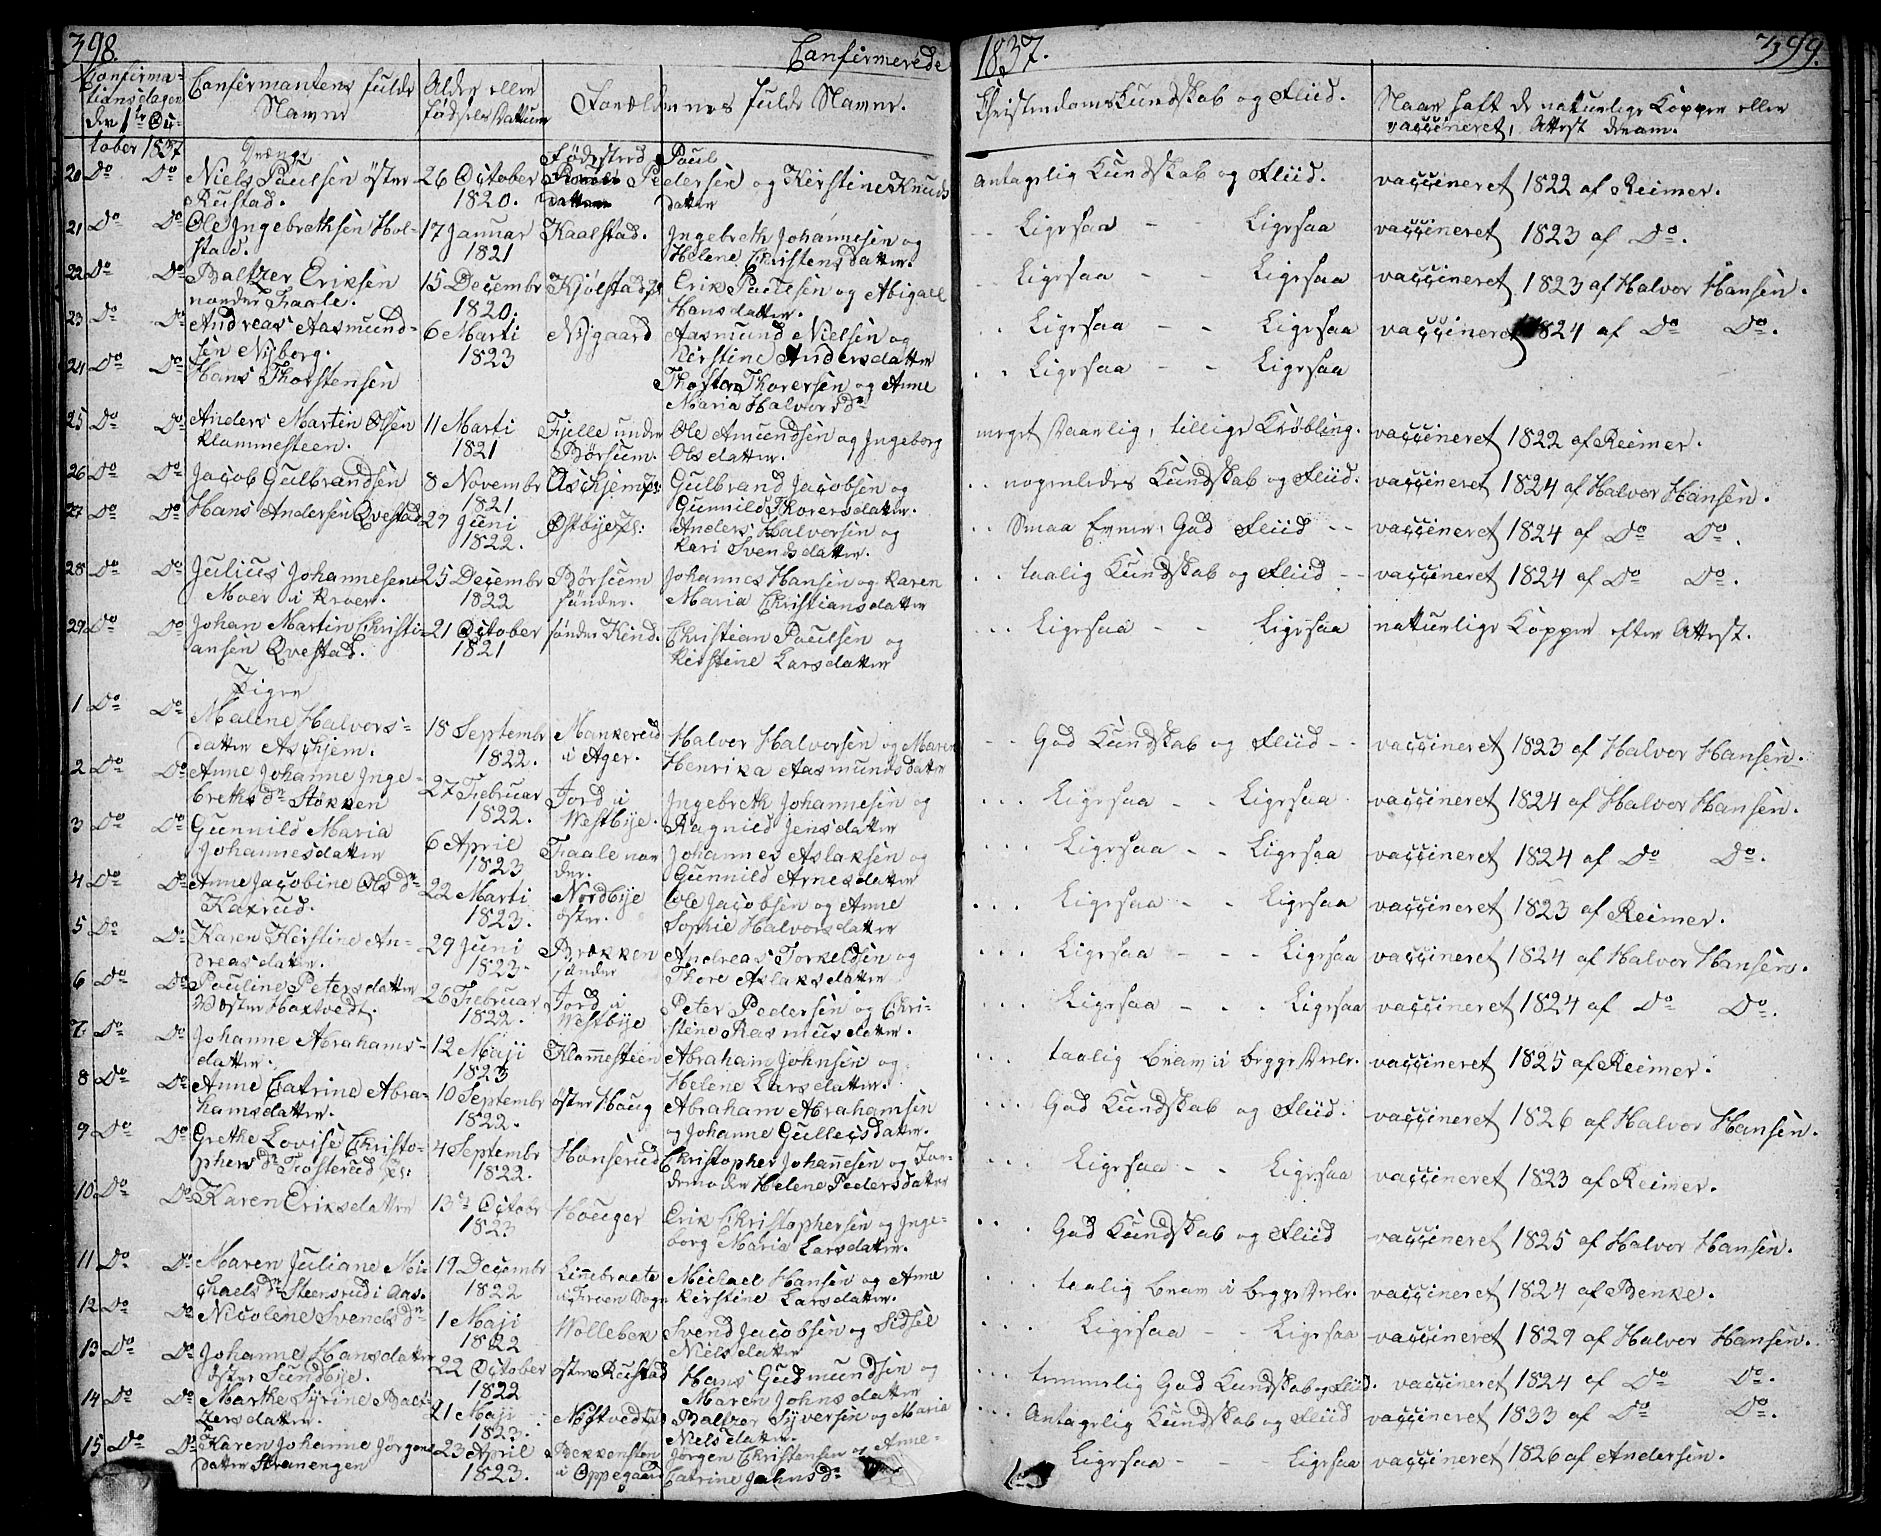 398.
Confirmerede
1837.
399.
Confirma-
tionsdagen
den 1te Oc-
tober 1837
Confirmantens fulde
Navne
Alder eller
Fødsels Dattum
Forældrenes fulde Navne.
Christendoms Kundskab og Fliid.
Naar haft de naturlige Kopper eller
vaççineret, Attest derom.
Drenge
Fødested
20 Do Do Niels Paulsen öster
Rustad.
26 October
1820.
Paul
Pedersen og Kirstine Knuds
datter
Antagelig Kundskab og Fliid.
vaççineret 1822 af Reimer.
21 Do Do Ole Ingebrethsen Hol-
stad.
17 Januar
1821
Kaalstad.
Ingebreth Johannesen og
Helene Christensdatter.
Ligesaa - Ligesaa
vaççineret 1823 af Do.
22 Do Do Baltzer Eriksen
norder Fraale.
15 Decembr
1820.
Kjølstad
Erik Paulsen og Abigael
Hansdatter.
Ligesaa - - Ligesaa
vaççineret 1823 af Halvor Hansen.
23 Do Do Andreas Aasmund-
sen Nyborg.
6 Marti
1823
Nygaard
Aasmund Nielsen og
Kirstine Andersdatter
Ligesaa - - Ligesaa
vaççineret 1824 af Do Do.
24 Do Do Hans Thorstensen
Thosten Thorersen og Anne
Maria Halvorsdr
Ligesaa - - Ligesaa
25 Do Do Anders Martin Olsen
Klammesteen.
11 Marti
1821
Fjelle under
Børsum.
Ole Amundsen og Ingeborg
Olsdatter.
meget daarlig, tillige Krøbling.
vaççineret 1822 af Reimer.
26 Do Do Jacob Gulbrandsen
8 Novembr
1821
Aschjem
Gulbrand Jacobsen og
Gunnild Thorersdatter.
nogenledes Kundskab og Fliid.
vaççineret 1824 af Halvor Hansen.
27 Do Do Hans Andersen Qvestad
27 Juni
1822.
Østbye
Anders Halvorsen og
Kari Svendsdatter.
Smaa Evner, God Fliid - -
vaççineret 1824 af Do Do.
28 Do Do Julius Johannesen
Moer i Kroer.
25 Decembr
1822
Børsum
sønder.
Johannes Hansen og Karen
Maria Christiansdatter
taalig Kundskab og Fliid - -
vaççineret 1824 af Do Do.
29 Do Do Johan Martin Christi-
ansen Qvestad.
21 October
1821
sønder Kind.
Christian Paulsen og
Kirstine Larsdatter
Ligesaa - - Ligesaa
naturlige Kopper efter Attest.
Piger
1 Do Do Malene Halvors-
datter Aschjem.
18 Septembr
1822.
Mankerud
i Ager.
Halvor Halvorsen og Maren
Henrika Aasmundsdatter
God Kundskab og Fliid - -
vaççineret 1823 af Halvor Hansen.
2 Do Do Anne Johanne Inge-
brethsdr Støkken
27 Februar
1822.
Jord i
Westbye.
Ingebreth Johannesen og
Ragnild Jensdatter
Ligesaa - - Ligesaa
vaççineret 1824 af Halvor Hansen.
3 Do Do Gunnild Maria
Johannesdatter
6 April
1823
Fraale nor
der.
Johannes Aslaksen og
Gunnild Arnesdatter
Ligesaa - - Ligesaa
vaççineret 1824 af Do Do.
4 Do Do Anne Jacobine Olsdr
Haxrud.
22 Marti
1823.
Nordbye
øster.
Ole Jacobsen og Anne
Sophie Halvorsdatter
Ligesaa - - Ligesaa
vaççineret 1823 af Reimer.
5 Do Do Karen Kirstine An-
dreasdatter.
29 Juni
1823.
Brekken
sønder
Andreas Torkeldsen og
Thore Aslaksdatter
Ligesaa - - Ligesaa
vaççineret 1824 af Halvor Hansen.
6 Do Do Pauline Petersdatter
Wæster Haxtvedt.
26 Februar
1822.
Jord i
Westbye
Peter Pedersen og Chri-
stine Rasmusdatter.
Ligesaa - - Ligesaa
vaççineret 1824 af Do Do.
7 Do Do Johanne Abrahams-
datter.
12 Maji
1823
Klam̄esteen
Abraham Johnsen og
Helene Larsdatter.
taalig brav i begge Deele.
vaççineret 1825 af Reimer.
8 Do Do Anne Catrine Abra-
hamsdatter.
10 Septembr
1822.
öster Houg
Abraham Abrahamsen
og Johanne Gullecsdatter.
God Kundskab og Fliid.
vaççineret 1826 af Halvor Hansen.
9 Do Do Grethe Lovise Christo-
phersdr Frosterud
4 Septembr
1822.
Honserud
Christopher Johan̄esen og Jor-
demoder Helene Pedersdatter
Ligesaa - - Ligesaa
vaççineret 1823 af Reimer.
10 Do Do Karen Eriksdatter
13de Octobr
1823
Houger
Erik Christophersen og Inge-
borg Maria Larsdatter.
God Kundskab og Fliid
vaççineret 1825 af Halvor Hansen.
11 Do Do Maren Juliane Mi-
chaelsdr Steensrud i Aas.
19 Decembr
1822
Linnebraate
i Froen Sogn
Michael Hansen og Anne
Kirstine Larsdatter.
taalig brav i begge Deele.
vaççineret 1824 af Benke.
12 Do Do Nicolene Svendsdr
1 Maji
1822
Wollebek
Svend Jacobsen og Sidsel
Nielsdatter
Ligesaa - Ligesaa
vaççineret 1829 af Halvor Hansen.
13 Do Do Johanne Hansdatter
öster Sundbye.
22 October
1822
öster Rustad
Hans Gudmundsen og
Maren Johnsdatter
temmelig God Kundskab og Fliid.
vaççineret 1824 af Do Do.
14 Do Do Marthe Syrine Balt-
zersdatter.
21 Maji
1823.
Nøstvedt
Baltzer Syversen og Maria
Nielsdatter.
Antagelig Kundskab og Fliid
vaççineret 1833 af Do Do.
15 Do Do Karen Johanne Jörgens
datter Stranengen
23 April
1823.
Bekkensten
i Oppegaard
Jörgen Christensen og Anne
Catrine Johnsdr
Ligesaa - - Ligesaa
vaççineret 1826 af Andersen.